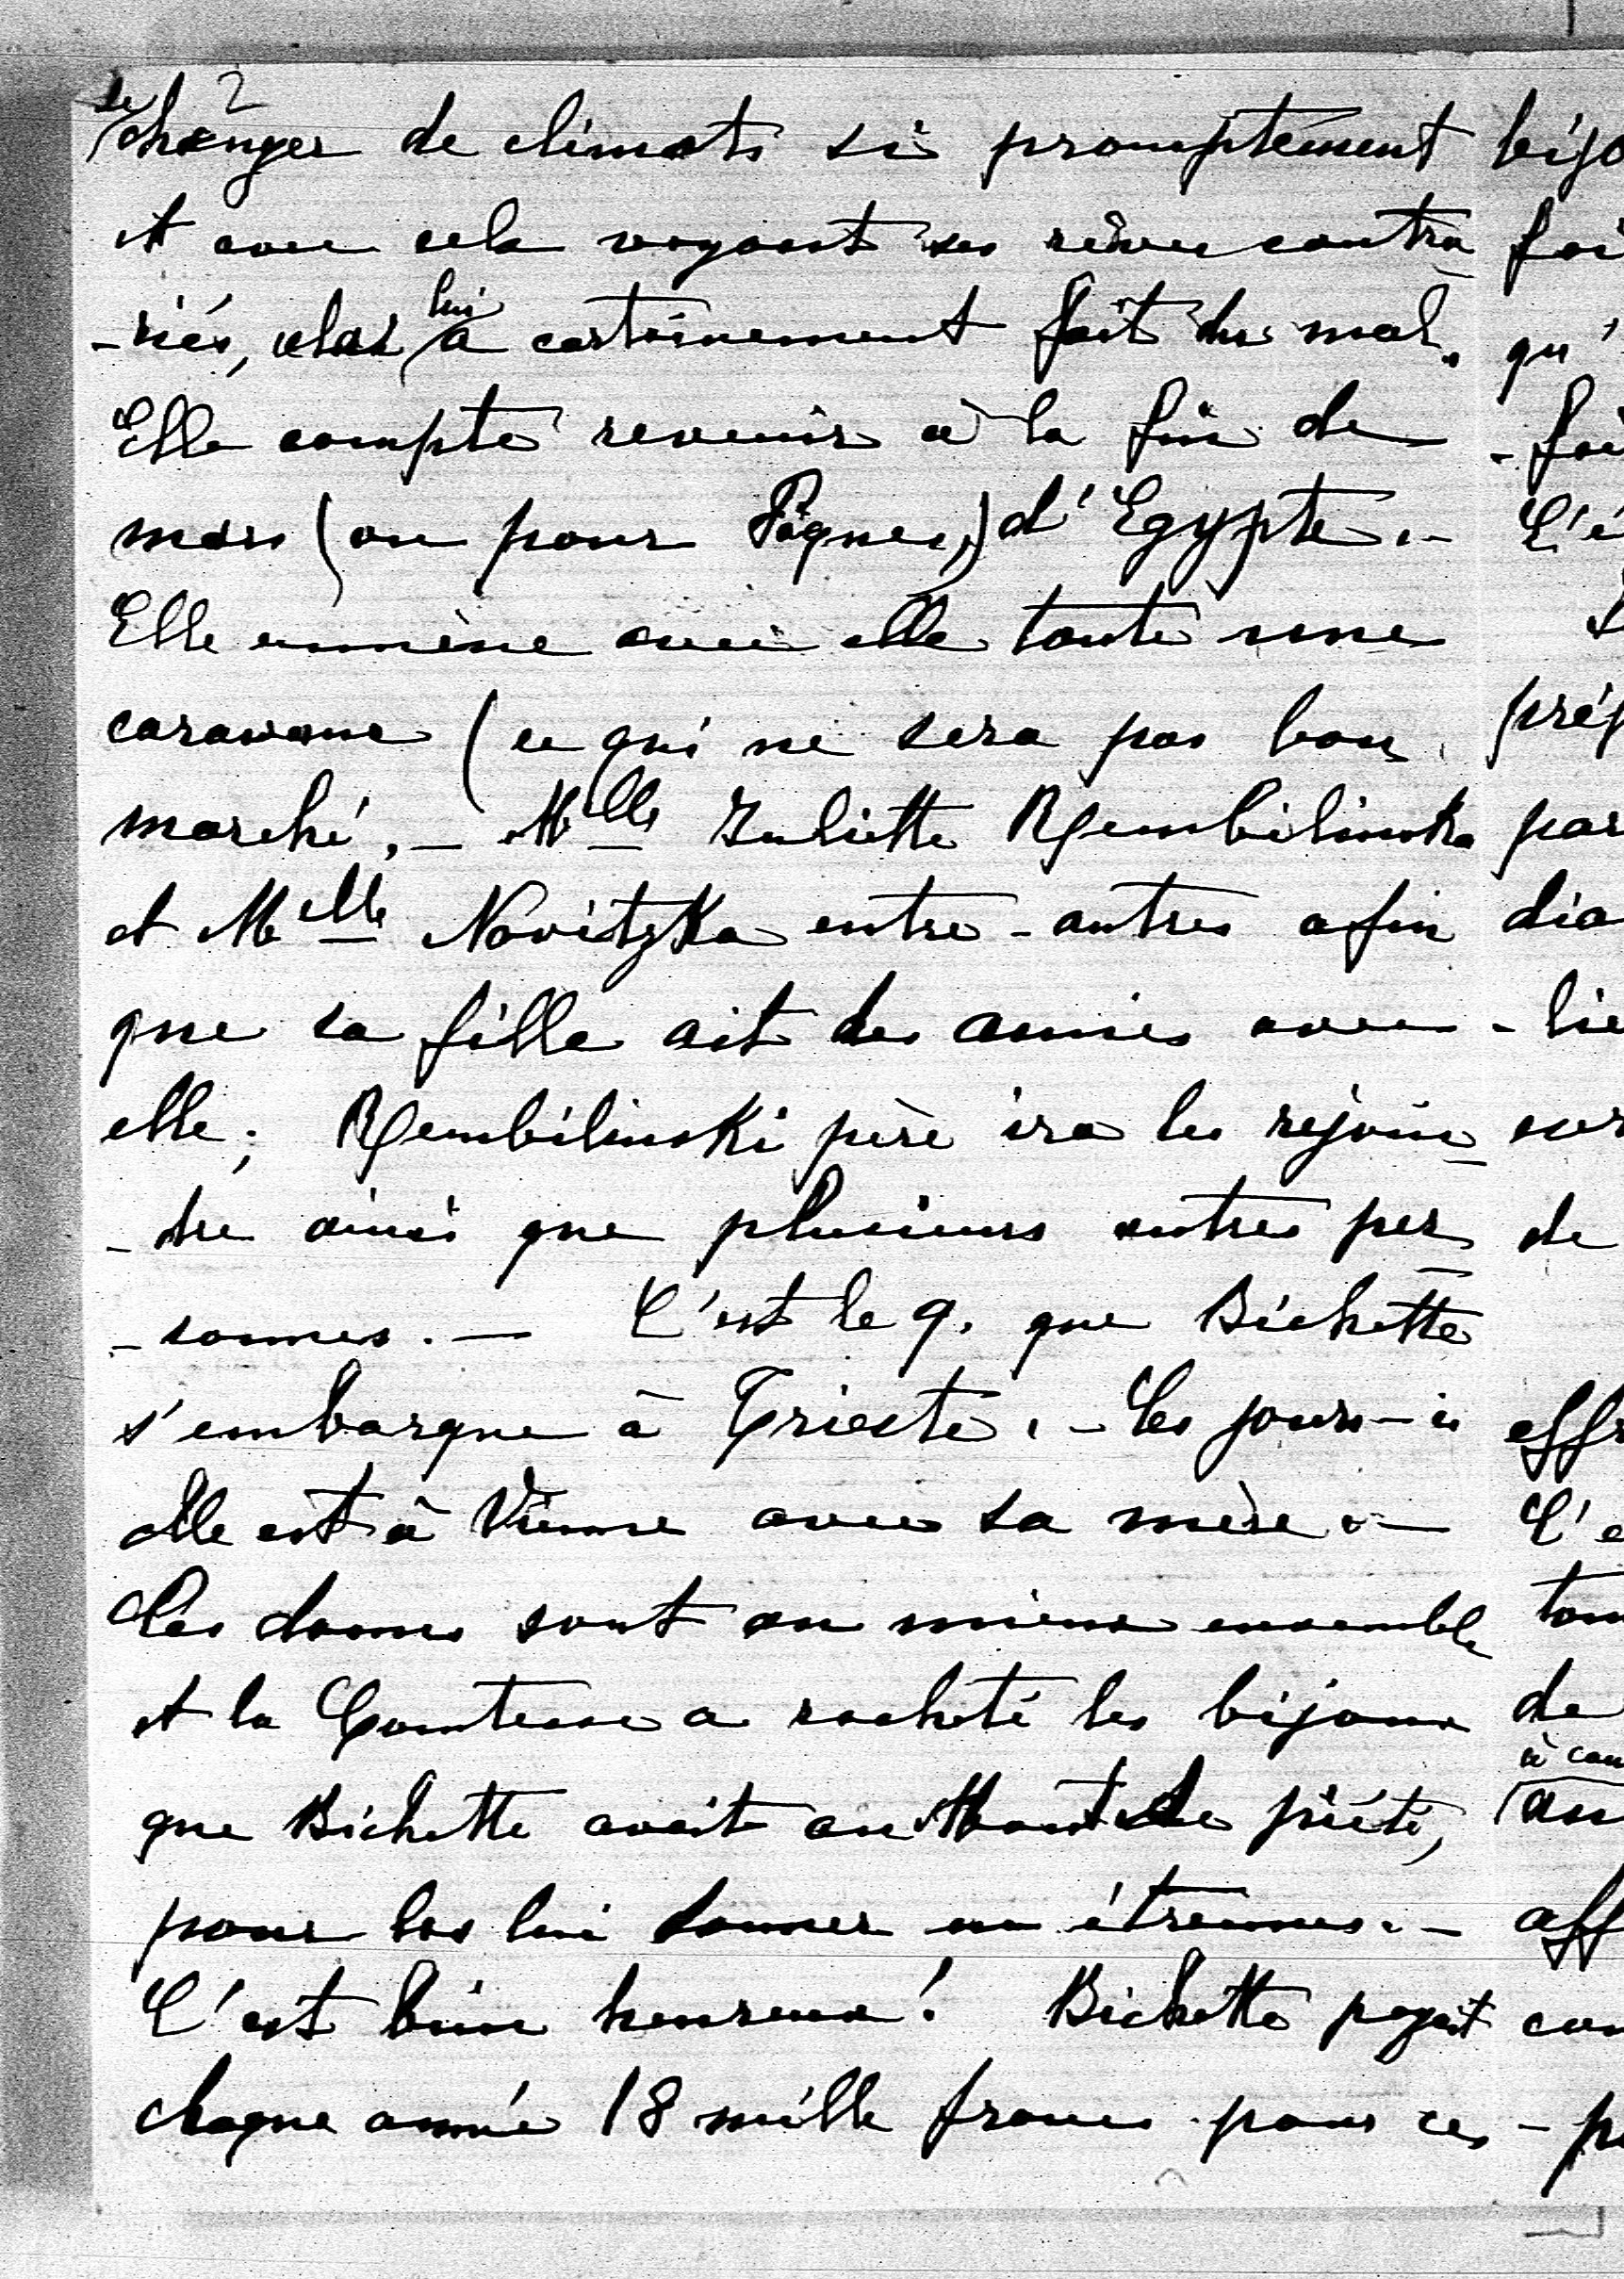 2
de
changer de climats si promptement
et avec cela voyant ses rêves contra
-riés, cela lui a certainement fait du mal.
Elle compte revenir à la fin de
mars (ou pour Pâques,) d'Egypte. -
Elle emmène avec elle toute une
caravane (ce qui ne sera pas bon
marché. - Mlle Juliette Rembilinska
et Melle Novitzka entre-autres afin
que sa fille ait des amies avec
elle; Rembilinski père ira les rejoin
-dre ainsi que plusieurs autres per
-sonnes. - C'est le 9. que Bichette
s'embarque à Trieste. - Ces jours-ci
elle est à Vienne avec sa mère. -
Ces dames sont au mieux ensemble
et la Comtesse a racheté les bijoux
que Bichette avait au Mont de piété,
pour les lui donner en étrennes. -
C'est bien heureux! Bichette payait
chaque année 18 mille francs pour ces